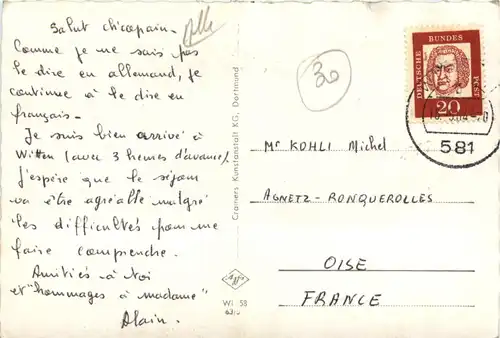 Salut chicopain.
Comme je ne sais pas
le dire en allemand, je
continue à le dire en
français.
Je suis bien arrivé à
Witten (avec 3 heures d'avance).
J'espère que le séjour
va être agréable malgré
les difficultés pour me
faire comprendre.
Amitiés à toi
et "hommages à madame"
Alain.
30
Cramers Kunstanstalt KG, Dortmund
Agfa
Wi 58
DEUTSCHE BUNDESPOST
20
581
Mr KOHLI Michel
AGNETZ-RONQUEROLLES
OISE
FRANCE